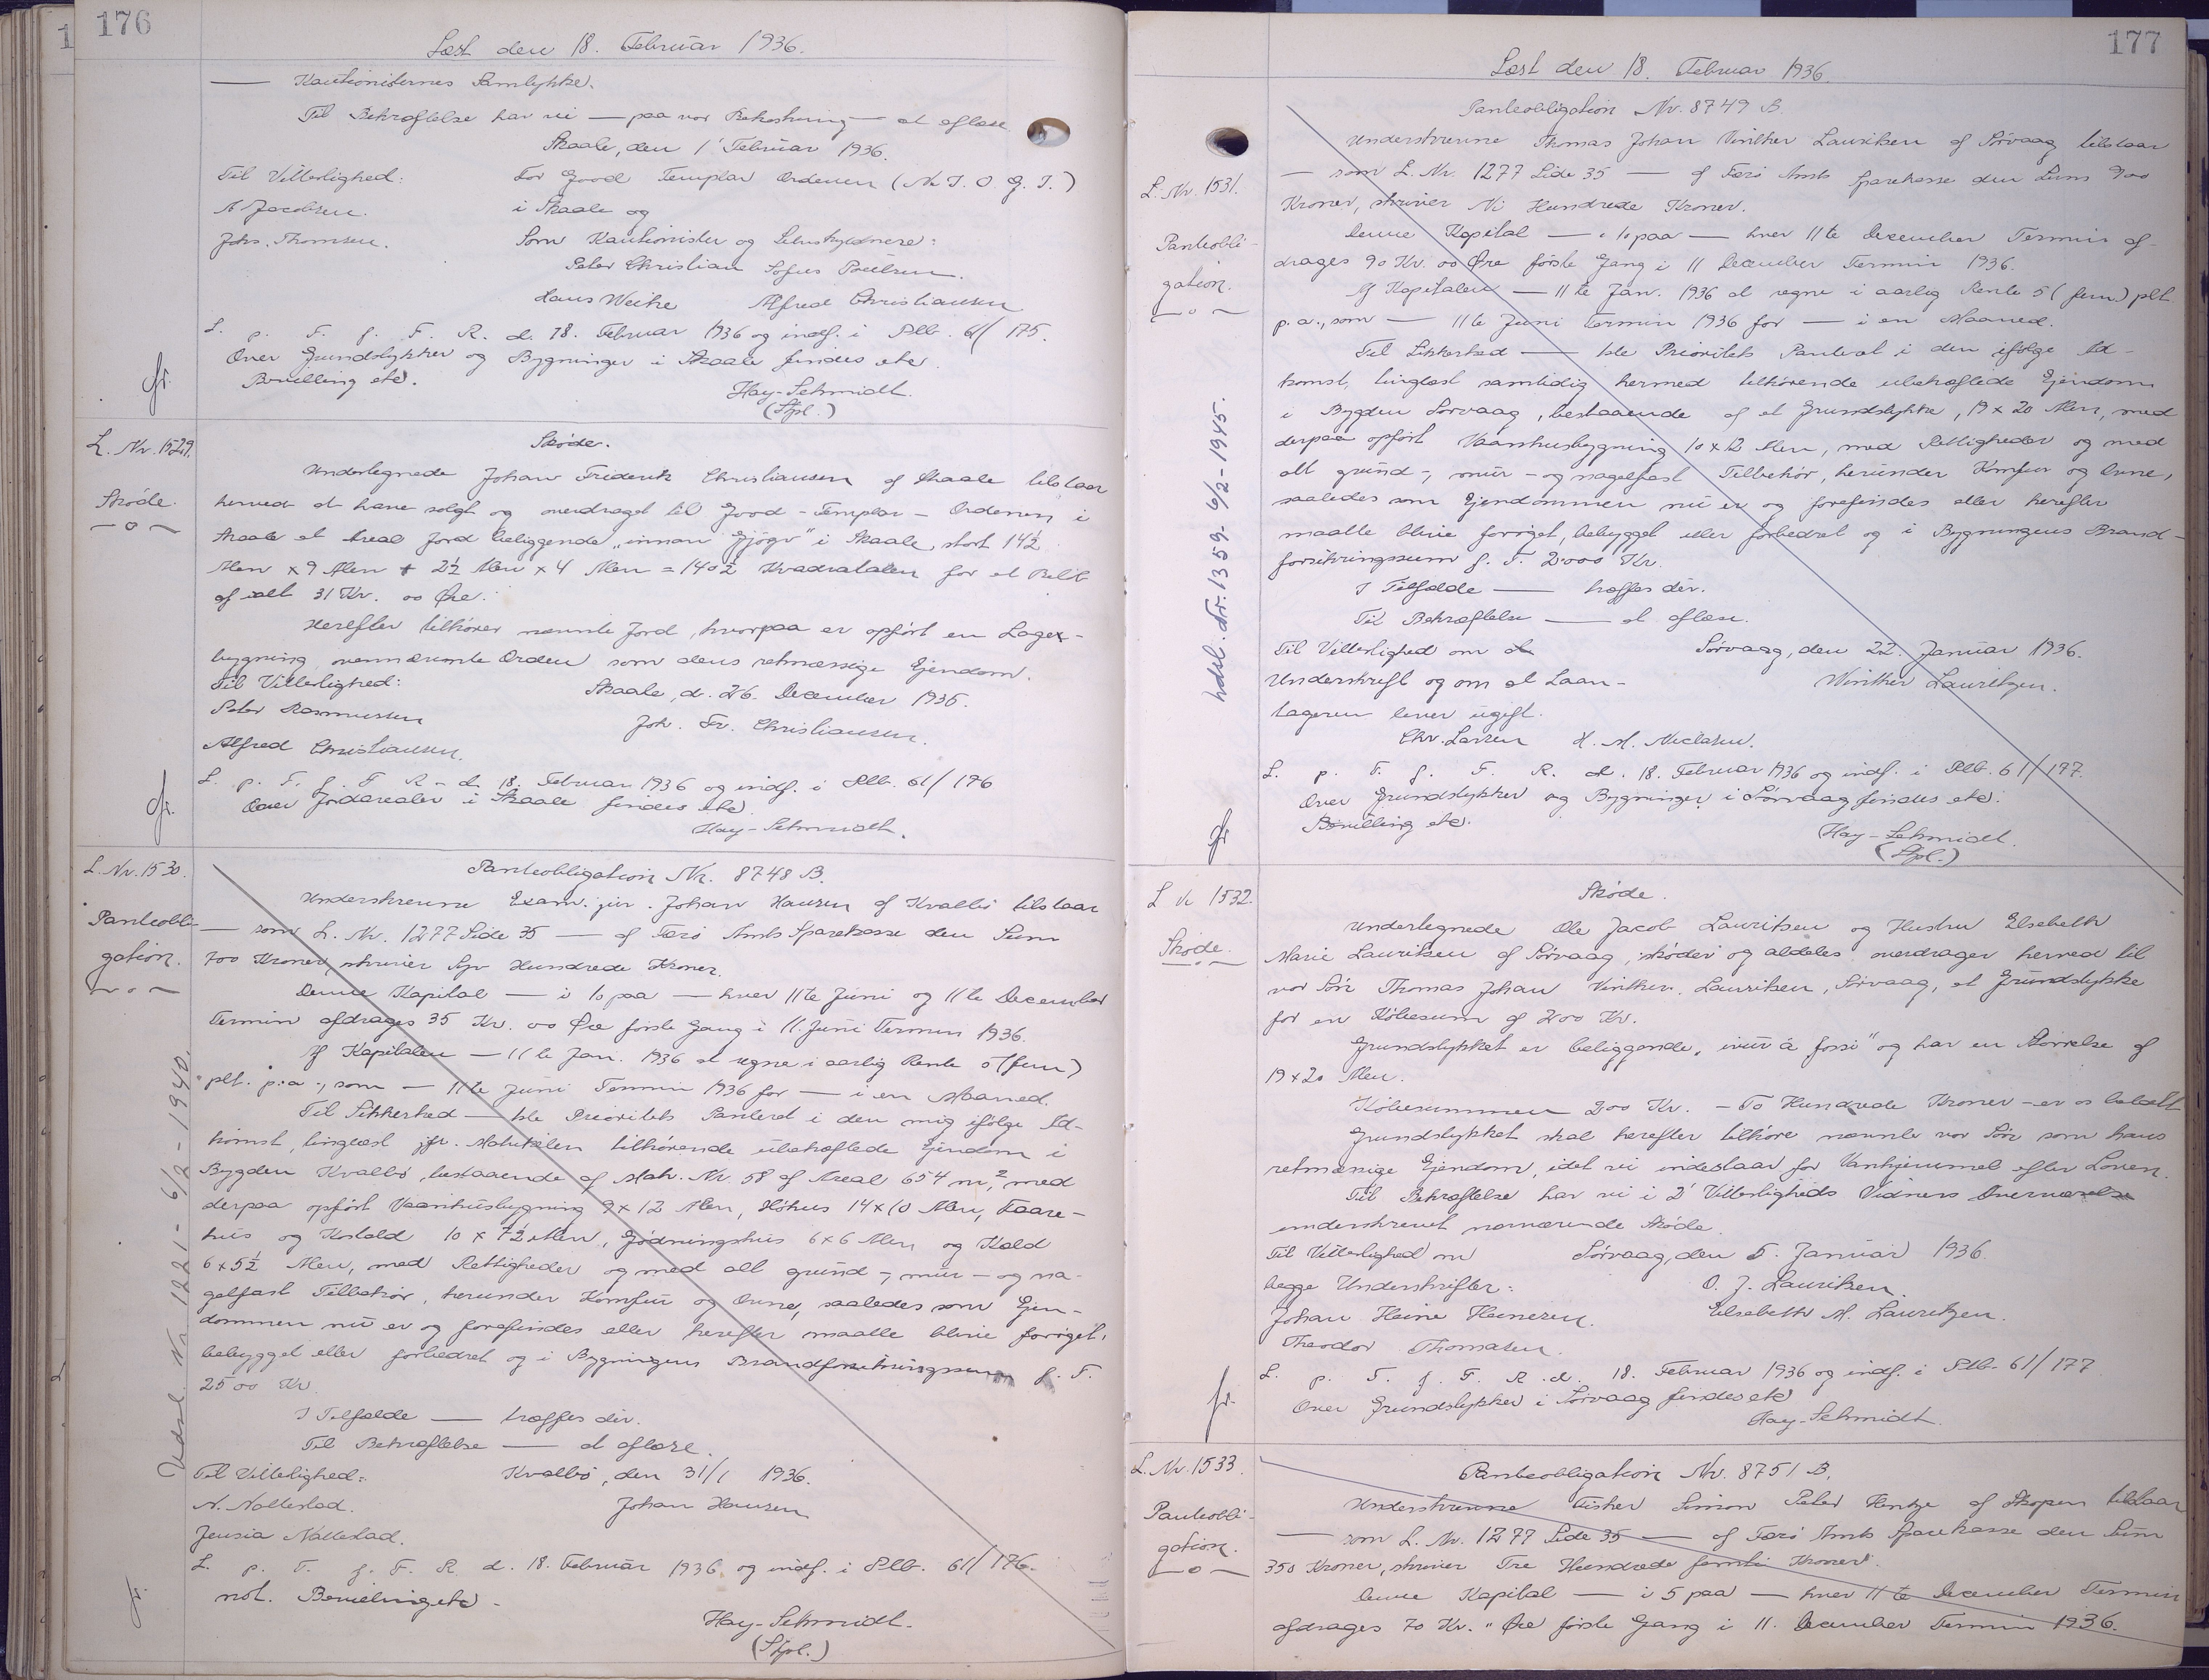 176
Læst den 18. Februar 1936.
— Kautionisternes Samtykke.
Til Bekræftelse har vi — paa vor Bekostning — at aflæse
Skaale, den 1' Februar 1936.
Til Vitterlighed: For Good Templar Ordenen (N. I. O. G. T.)
A Jacobsen. i Skaale og
Johs. Thomsen. Som Kautionister og Selvskyldnere:
Peter Christian Sofus Poulsen.
Hans Weihe Alfred Christiansen
L. p. T. f. F. R. d. 18. Februar 1936 og indf. i Plb. 61/175.
Over Grundstykker og Bygninger i Skaale findes etc.
Bevilling etc.
Hay-Schmidt.
(Stpl.)
L. Nr. 1529.
Skøde.
Skøde.
Undertegnede Johan Friderik Christiansen af Skaale tilstaar
herved at have solgt og overdraget til Good-Templar-Ordenen i
Skaale et Areal Jord beliggende „innan Gjógv" i Skaale, stort 14½
Alen x 9 Alen + 2½ Alen x 4 Alen = 140½ Kvadratalen for et Beløb
af ialt 31 Kr. 00 Øre.
Herefter tilhører nævnte Jord, hvorpaa er opført en Loge-
bygning ovennævnte Orden som dens retmæssige Ejendom.
Til Vitterlighed: Skaale, d. 26. December 1935.
Peter Rasmussen Joh. Fr. Christiansen.
Alfred Christiansen.
L. p. T. f. F. R. d. 18. Februar 1936 og indf. i Plb. 61/176
Over Jordarealer i Skaale findes etc.
Hay-Schmidt.
L. Nr. 1530.
Panteobli-
gation.
Panteobligation Nr. 8748 B.
Underskrevne Exam. jur. Johan Hansen af Kvalbø tilstaar
— som L. Nr. 1277 Side 35 — af Færø Amts Sparekasse den Sum
700 Kroner, skriver Syv Hundrede Kroner.
Denne Kapital — i 10 paa — hver 11te Juni og 11te December
Termin afdrages 35 Kr. 00 Øre første Gang i 11. Juni Termin 1936.
Af Kapitalen — 11te Jan. 1936 at regne i aarlig Rente 5 (fem)
pCt. p. a., som — 11te Juni Termin 1936 for — i en Maaned.
Til Sikkerhed — 1ste Prioritets Panteret i den mig ifølge Ad-
komst, tinglæst jfr. Matriklen tilhørende ubehæftede Ejendom i
Bygden Kvalbø, bestaaende af Matr. Nr. 58 af Areal 654 m², med
derpaa opført Vaanhusbygning 9 x 12 Alen, Høhus 14 x 10 Alen, Faare-
hus og Kostald 10 x 7½ Alen, Gødningshus 6 x 6 Alen og Kald
6 x 5½ Alen, med Rettigheder og med alt grund-, mur- og na-
gelfast Tilbehør, herunder Komfur og Ovne, saaledes som Ejen-
dommen nu er og forefindes eller herefter maatte blive forøget,
bebygget eller forbedret og i Bygningens Brandforsikringssum f. T.
2500 Kr.
I Tilfælde — træffes dèr.
Til Bekræftelse — at aflæse.
Til Vitterlighed: Kvalbø, den 31/1 1936.
N. Nattestad. Johan Hansen
Jensia Nattestad.
L. p. T. f. F. R. d. 18. Februar 1936 og indf. i Plb. 61/176.
not. Bevilling etc.
Hay-Schmidt.
(Stpl.)
Udsl. Nr. 1221 - 6/2 - 1940.
177
Læst den 18. Februar 1936.
L. Nr. 1531.
Panteobli-
gation.
Panteobligation Nr. 8749 B.
Underskrevne Thomas Johan Vinther Lauritsen af Sørvaag tilstaar
— som L. Nr. 1277 Side 35 — af Færø Amts Sparekasse den Sum 900
Kroner, skriver Ni Hundrede Kroner.
Denne Kapital — i 10 paa — hver 11te December Termin af-
drages 90 Kr. 00 Øre første Gang i 11 December Termin 1936.
Af Kapitalen — 11te Jan. 1936 at regne i aarlig Rente 5 (fem) pCt.
p. a., som — 11te Juni Termin 1936 for — i en Maaned.
Til Sikkerhed — 1ste Prioritets Panteret i den ifølge Ad-
komst, tinglæst samtidig hermed tilhørende ubehæftede Ejendom
i Bygden Sørvaag, bestaaende af et Grundstykke, 19 x 20 Alen, med
derpaa opført Vaanhusbygning 10 x 12 Alen, med Rettigheder og med
alt grund-, mur- og nagelfast Tilbehør, herunder Komfur og Ovne,
saaledes som Ejendommen nu er og forefindes eller herefter
maatte blive forøget, bebygget eller forbedret og i Bygningens Brand-
forsikringssum f. T. 2000 Kr.
I Tilfælde — træffes dèr.
Til Bekræftelse — at aflæse.
Til Vitterlighed om Sørvaag, den 22. Januar 1936.
Underskrift og om at Laan- Winther Lauritzen.
tageren lever ugift.
Chr. Larsen H. M. Niclasen.
L. p. T. f. F. R. d. 18. Februar 1936 og indf. i Plb. 61/177.
Over Grundstykker og Bygninger i Sørvaag findes etc.
Bevilling etc.
Hay-Schmidt.
(Stpl.)
Udsl. Nr. 1359 - 6/2 - 1945.
L Nr 1532.
Skøde.
Skøde.
Undertegnede Ole Jacob Lauritsen og Hustru Elsebeth
Marie Lauritsen af Sørvaag, skøder og aldeles overdrager herved til
vor Søn Thomas Johan Vinther Lauritsen, Sørvaag, et Grundstykke
for en Købesum af 200 Kr.
Grundstykket er beliggende „ivur á fossi" og har en Størrelse af
19 x 20 Alen.
Købesummen 200 Kr. - To Hundrede Kroner - er os betalt
Grundstykket skal herefter tilhøre nævnte vor Søn som hans
retmæssige Ejendom, idet vi indestaar for Vanhjemmel efter Loven.
Til Bekræftelse har vi i 2' Vitterligheds Vidners Overværelse
underskrevet nærværende Skøde.
Til Vitterlighed om Sørvaag, den 5. Januar 1936.
begge Underskrifter: O. J. Lauritsen.
Johan Heine Heinesen. Elsebeth M. Lauritzen.
Theodor Thomasen.
L. p. T. f. F. R. d. 18. Februar 1936 og indf. i Plb. 61/177
Over Grundstykker i Sørvaag findes etc
Hay-Schmidt.
L. Nr. 1533.
Panteobli-
gation.
Panteobligation Nr. 8751 B.
Underskrevne Fisker Simon Peter Hentze af Skopen tilstaar
— som L. Nr. 1277 Side 35 — af Færø Amts Sparekasse den Sum
350 Kroner, skriver Tre Hundrede femti Kroner.
Denne Kapital — i 5 paa — hver 11te December Termin
afdrages 70 Kr. " Øre første Gang i 11. December Termin 1936.